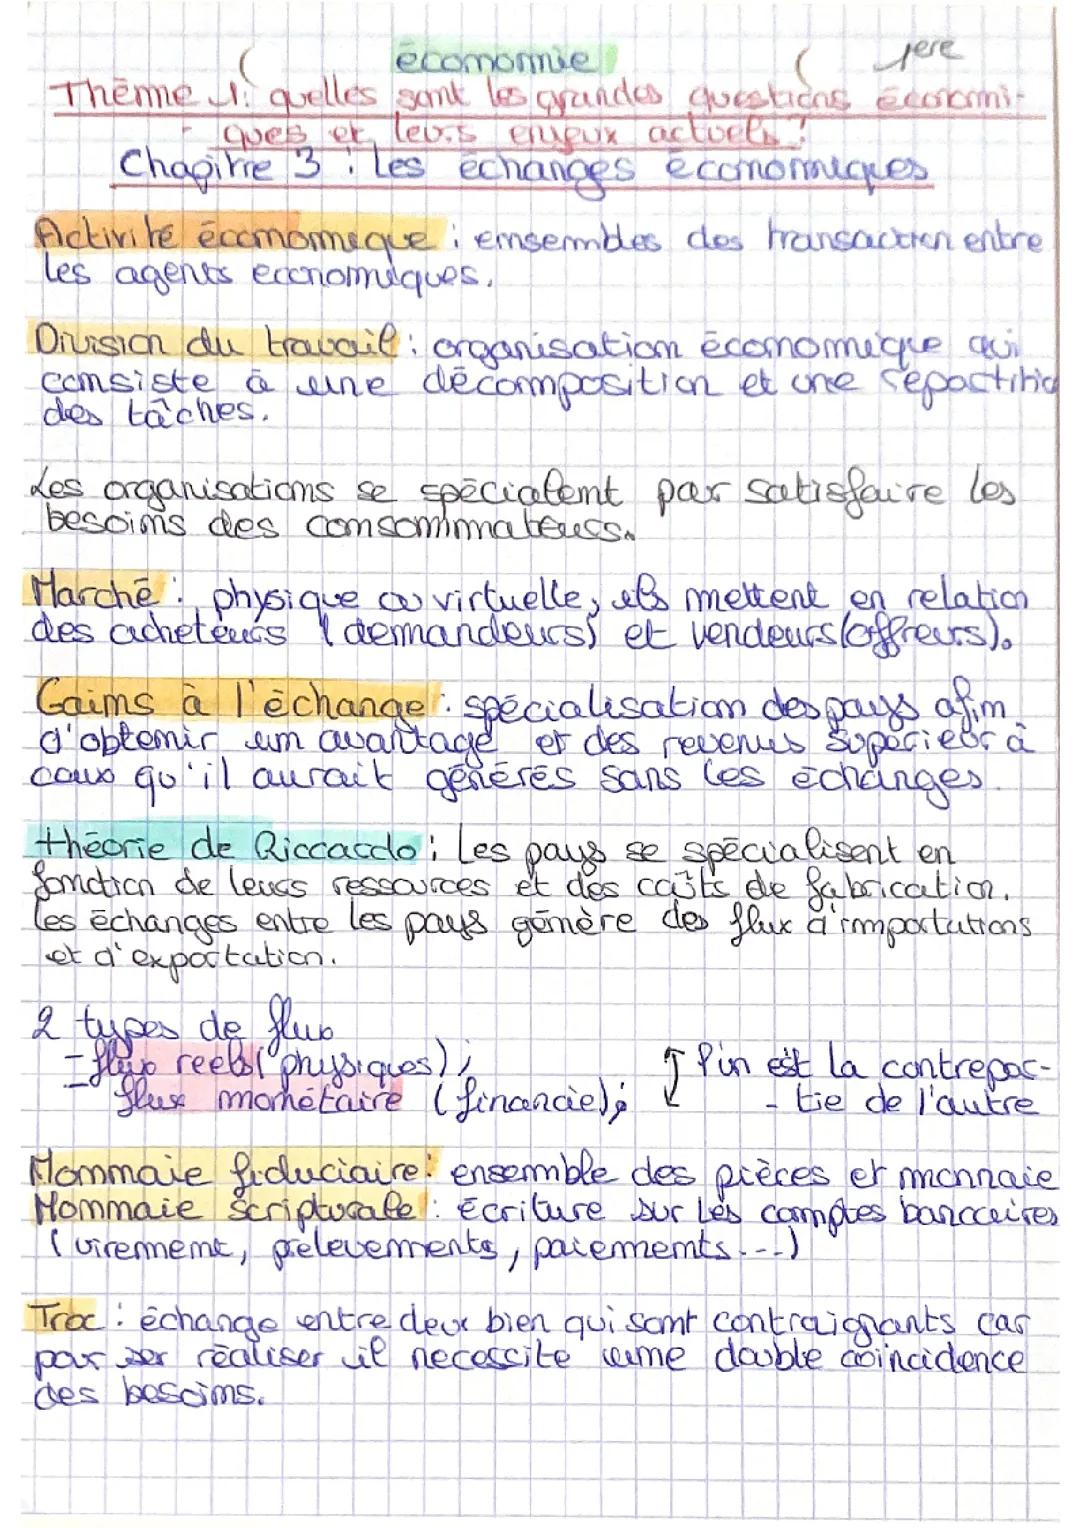 économie
1ere
Thème 1: quelles sont les grandes questions économi-
ques et leurs enjeux actuels ?
Chapitre 3 : Les échanges économiques
Activité économique : ensembles des transaction entre
les agents economiques.
Division du travail : organisation économique qui
consiste à une décomposition et une répartitio
des tâches.
Les organisations se spécialent par satisfaire les
besoins des consommateurs.
Marché : physique ou virtuelle, ils mettent en relation
des acheteurs (demandeurs) et vendeurs (offreurs).
Gains à l'échange : spécialisation des pays afin
d'obtenir un avantage et des revenus supérieur à
ceux qu'il aurait générés sans les échanges.
théorie de Riccardo : Les pays se spécialisent en
fonction de leurs ressources et des coûts de fabrication.
Les échanges entre les pays génère des flux d'importations
et d'exportation.
2 types de flux
- flux reels (physiques) ;
- flux monétaire (financie) ;
l'un est la contrepar-
- tie de l'autre
Monnaie fiduciaire : ensemble des pièces et monnaie
Monnaie scripturale : écriture sur les comptes bancaires
(virement, prelevements, paiements...)
Troc : échange entre deux bien qui sont contraignants car
pour ser réaliser il necessite une double coincidence
des besoins.